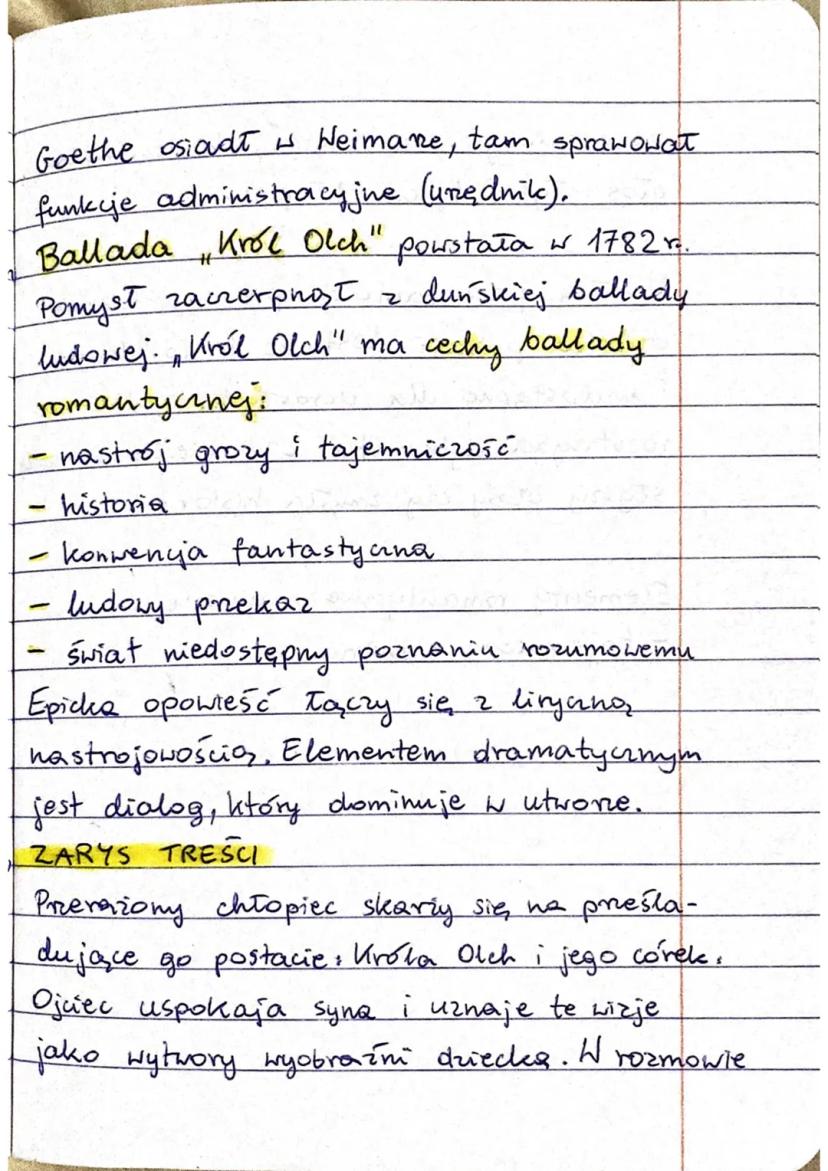 Goethe osiadł w Weimarze, tam sprawował
funkcje administracyjne (urzędnik).
Ballada „Król Olch" powstała w 1782 r.
Pomysł zaczerpnął z duńskiej ballady
ludowej. „Król Olch" ma cechy ballady
romantycznej:
- nastrój grozy i tajemniczość
- historia
- konwencja fantastyczna
- ludowy przekaz
- świat niedostępny poznaniu rozumowemu
Epicka opowieść łączy się z liryczną
nastrojowością. Elementem dramatycznym
jest dialog, który dominuje w utworze.
ZARYS TREŚCI
Przerażony chłopiec skarży się na prześla-
dujące go postacie: Króla Olch i jego córek.
Ojciec uspokaja syna i uznaje te wizje
jako wytwory wyobraźni dziecka. W rozmowie